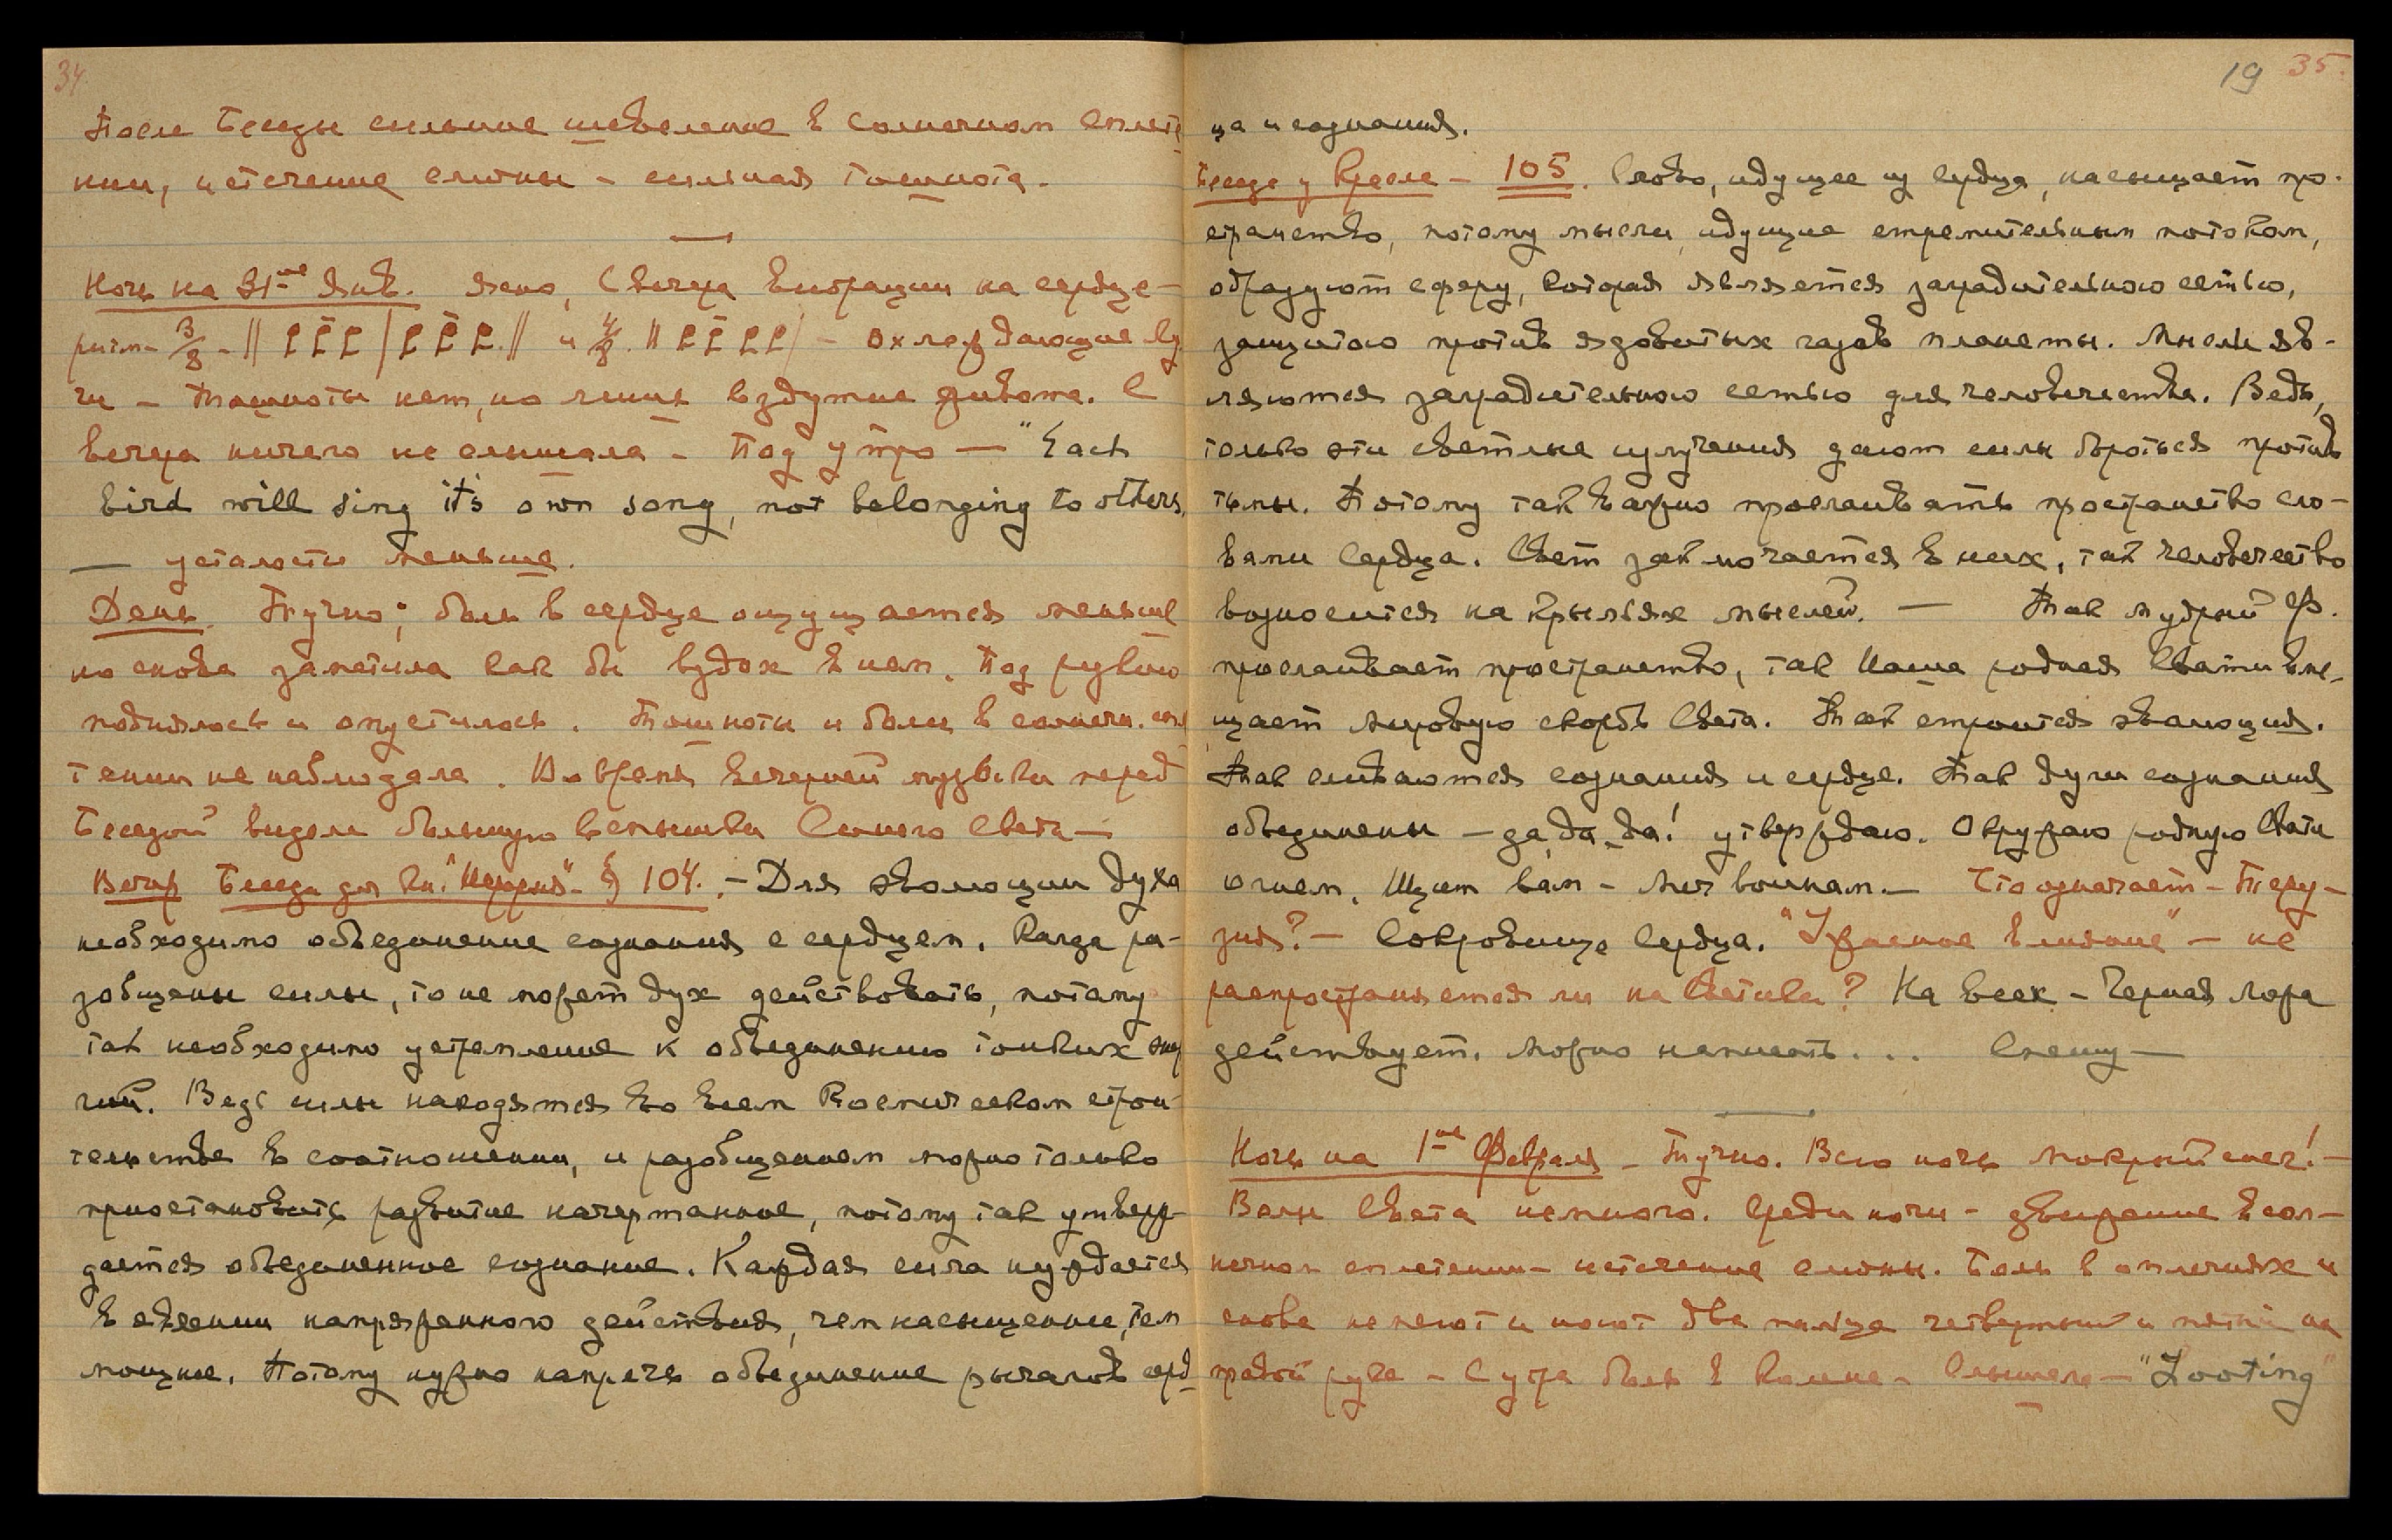 34.
После Беседы сильное шевеление в Солнечном сплете
нии, истечение слюны – сильная тошнота.
Ночь на 31-ое Янв. Ясно, С вечера вибрации на сердце –
ритм – 3/8 – и 4/8 – охлаждающие лу
чи – Тошноты нет, но лишь вздутие живота. С
вечера ничего не слышала – Под утро — "Each
bird will sing it's own song, not belonging to others.
— усталости меньше.
День. Тучно; боль в сердце ощущается меньше
но снова заметила как бы вздох в нем. Под рукою
поднялось и опустилось. Тошноты и боли в солнечн. спле
тении не наблюдала. Во время вечерней музыки перед
Беседой видели большую вспышку Синего Света –
Вечер Беседа для Кн. "Иерархия" § 104. – Для эволюции духа
необходимо объединение сознания с сердцем. Когда ра-
зобщены силы, то не может дух действовать, потому
так необходимо устремление к объединению тонких энер
гий. Ведь силы находятся во всем Космическом строи-
тельстве в соотношении, и разобщением можно только
приостановить развитие начертанное, потому так утверж-
дается объединенное сознание. Каждая сила нуждается
в явлении напряженного действия, чем насыщеннее, тем
мощнее. Потому нужно напречь объединение рычагов серд
19 35.
ца и сознания.
Беседа у Кресла – 105. Слово, идущее из сердца, насыщает про-
странство, потому мысли, идущие стремительным потоком,
образуют сферу, которая является заградительною сетью,
защитою против ядовитых газов планеты. Мысли яв-
ляются заградительною сетью для человечества. Ведь,
только эти светлые излучения дают силы бороться против
тьмы. Потому так важно прослаивать пространство сло-
вами Сердца. Свет заключается в них, так человечество
возносится на крыльях мыслей. — Так мудрый Ф.
прослаивает пространство, так Наша родная Свати вме-
щает мировую скорбь Света. Так строится эволюция.
Так сливаются сознания и сердце. Так духи сознания
объединены – да, да, да! утверждаю. Окружаю родную Свати
огнем. Щит вам – Меч воинам. – Что означает – Теру-
зия? – Сокровище Сердца. "Ужасное влияние" – не
распространяется ли на Светика? На всех – Черная ложа
действует. Можно написать... Спешу —
Ночь на 1-ое Февраля – Тучно. Всю ночь мокрый снег! –
Волн Света немного. Среди ночи – движение в сол-
нечном сплетении – истечение слюны. Боль в оплечиях и
снова немеют и ноют два пальца четвертый и пятый на
правой руке – С утра боль в колене – Слышала – "Looting"